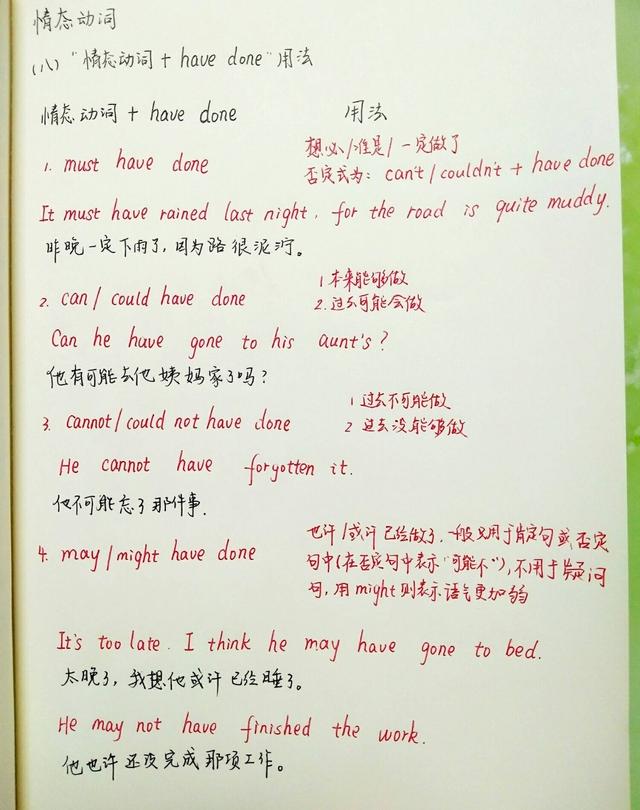 情态动词
(八) "情态动词 + have done" 用法
情态动词 + have done 用法
1. must have done 想必/准是/一定做了
否定式为: can't/couldn't + have done
It must have rained last night, for the road is quite muddy.
昨晚一定下雨了,因为路很泥泞。
2. can/could have done 1 本来能够做
2. 过去可能会做
Can he have gone to his aunt's?
他有可能去他姨妈家了吗?
3. cannot/could not have done 1 过去不可能做
2 过去没能够做
He cannot have forgotten it.
他不可能忘了那件事.
4. may/might have done 也许/或许已经做了.一般只用于肯定句或否定
句中(在否定句中表示"可能不"),不用于疑问
句,用might则表示语气更加
It's too late. I think he may have gone to bed.
太晚了,我想他或许已经睡了。
He may not have finished the work.
他也许还没完成那项工作。